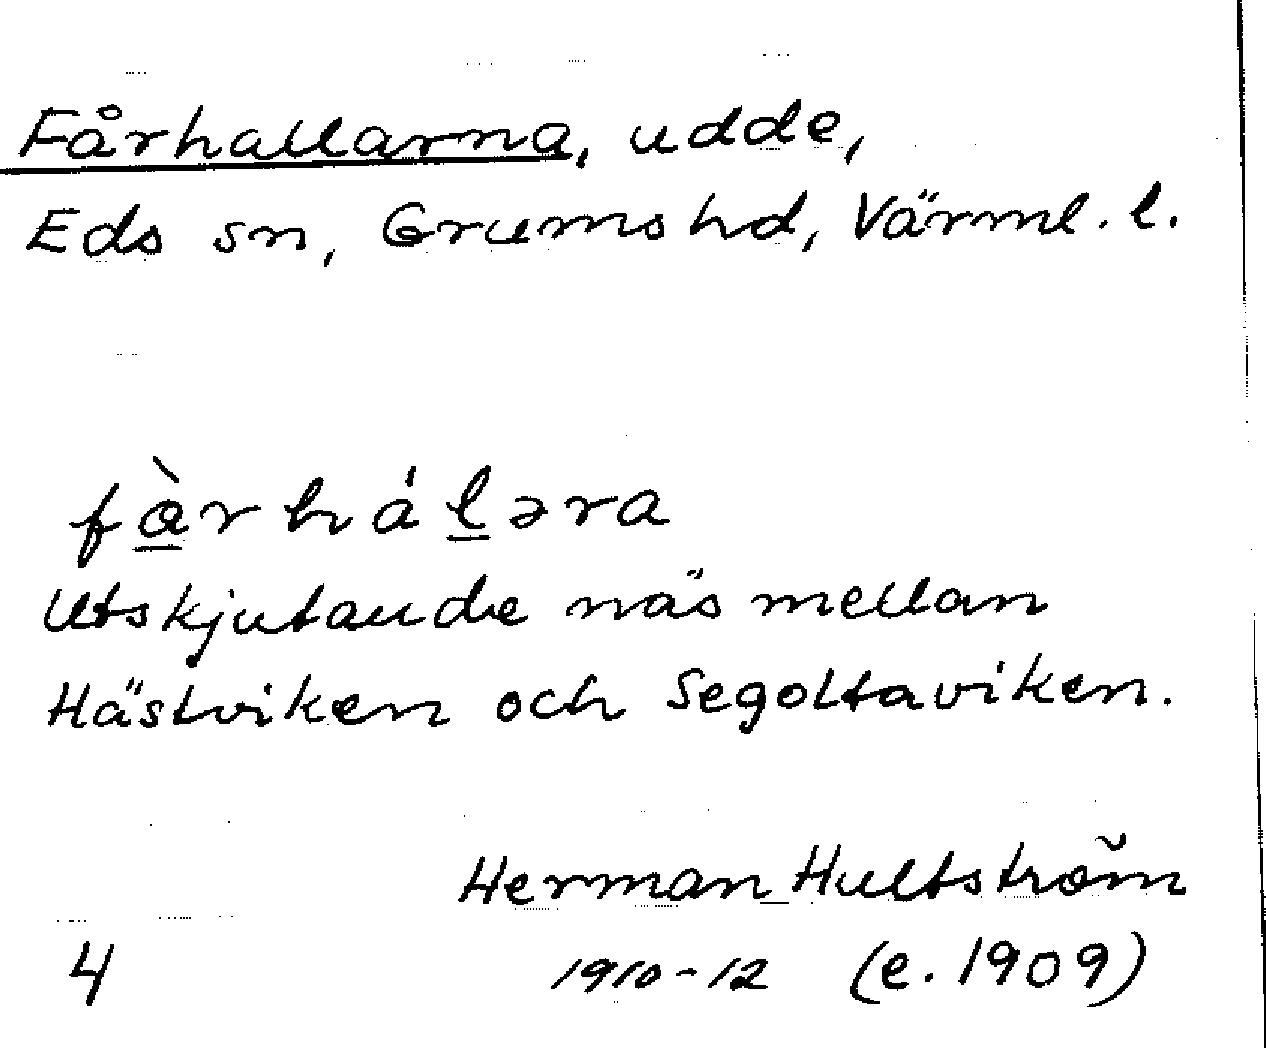 Fårhallarna, udde,
Eds sn, Grums hd, Värml. l.
fà̱rháḻəra
Utskjutande näs mellan
Hästviken och Segoltaviken.
Herman Hultström
4 1910-12 (e. 1909)